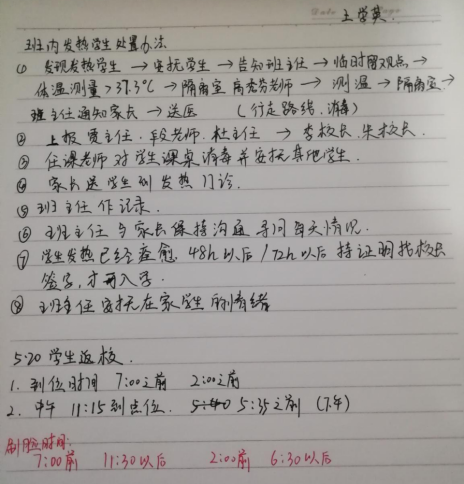 王学英.
班内发热学生处置办法
① 发现发热学生 → 安抚学生 → 告知班主任 → 临时留观点, →
体温测量>37.3℃ → 隔离室 老师 → 测温 → 隔离室 →
班主任通知家长 → 送医 (行走路线.消毒)
② 上报贾主任.段老师.杜主任 → 李校长.朱校长.
③ 任课老师对学生课桌消毒并安抚其他学生.
④ 家长送学生到发热门诊.
⑤ 班主任作记录.
⑥ 班主任与家长保持沟通 寻问每天情况.
⑦ 学生发热已经痊愈, 48h以后/72h以后 持证明找校长
签字,才可入学.
⑧ 班主任安抚在家学生的情绪
5.20 学生返校.
1. 到位时间 7:00之前 2:00之前
2. 中午 11:15到点位. 5:40 5:35之前 (下午)
刷脸时间:
7:00前 11:30以后 2:00前 6:30以后